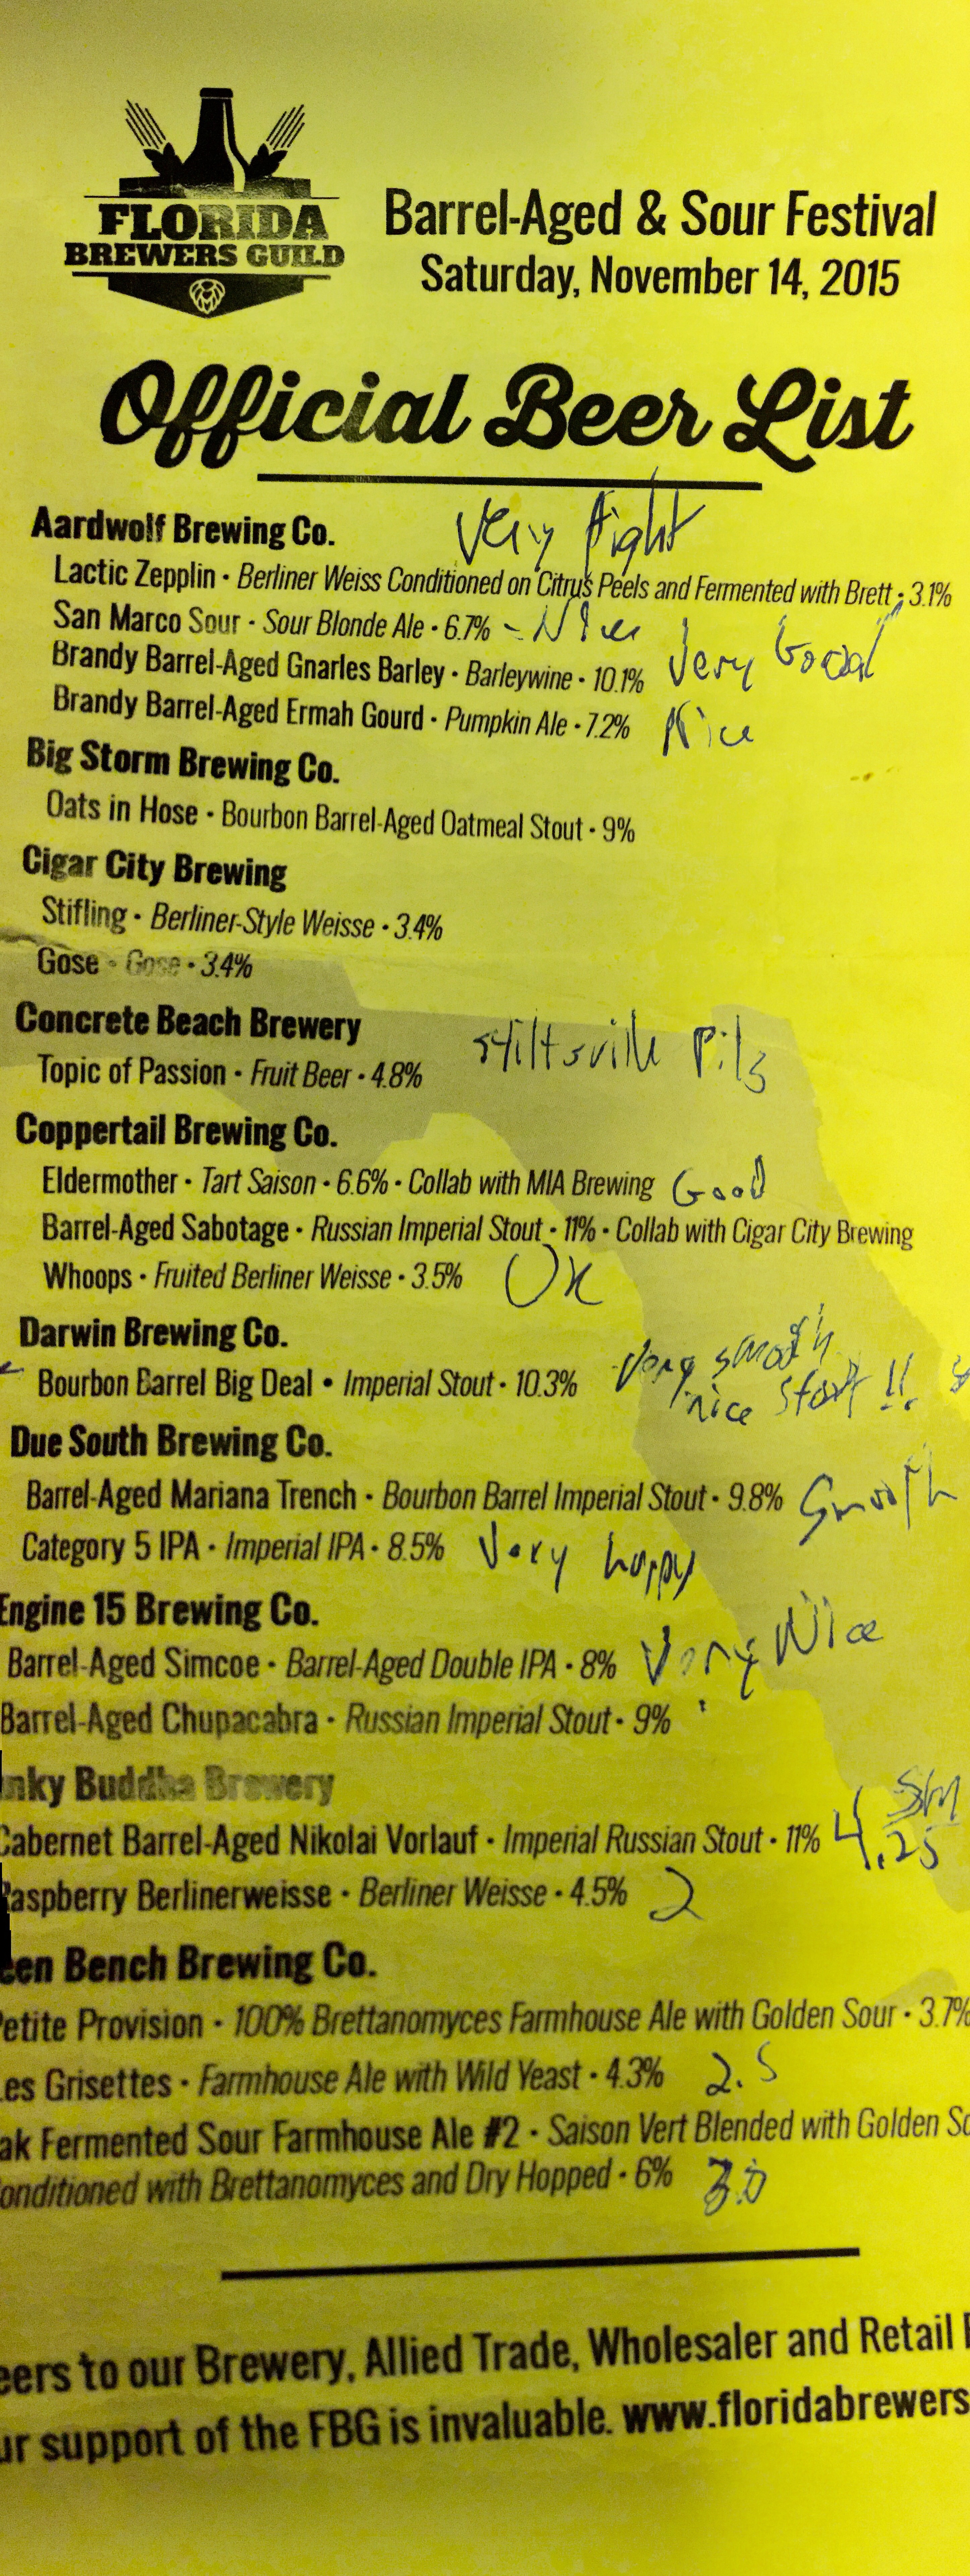 FLORIDA
BREWERS GUILD
Barrel-Aged & Sour Festival
Saturday, November 14, 2015
Official Beer List
Aardwolf Brewing Co. Very light
Lactic Zepplin • Berliner Weiss Conditioned on Citrus Peels and Fermented with Brett • 3.1%
San Marco Sour • Sour Blonde Ale • 6.7% - Nice
Brandy Barrel-Aged Gnarles Barley • Barleywine • 10.1% Very Good
Brandy Barrel-Aged Ermah Gourd • Pumpkin Ale • 7.2% Nice
Big Storm Brewing Co.
Oats in Hose • Bourbon Barrel-Aged Oatmeal Stout • 9%
Cigar City Brewing
Stifling • Berliner-Style Weisse • 3.4%
Gose • Gose • 3.4%
Concrete Beach Brewery Stiltsville Pils
Topic of Passion • Fruit Beer • 4.8%
Coppertail Brewing Co.
Eldermother • Tart Saison • 6.6% • Collab with MIA Brewing Good
Barrel-Aged Sabotage • Russian Imperial Stout • 11% • Collab with Cigar City Brewing
Whoops • Fruited Berliner Weisse • 3.5% OK
Darwin Brewing Co. Very smooth
Bourbon Barrel Big Deal • Imperial Stout • 10.3% nice start !!
Due South Brewing Co.
Barrel-Aged Mariana Trench • Bourbon Barrel Imperial Stout • 9.8% Smooth
Category 5 IPA • Imperial IPA • 8.5% Very hoppy
Engine 15 Brewing Co.
Barrel-Aged Simcoe • Barrel-Aged Double IPA • 8% Very Nice
Barrel-Aged Chupacabra • Russian Imperial Stout • 9%
nky Buddha Brewery
Cabernet Barrel-Aged Nikolai Vorlauf • Imperial Russian Stout • 11% 4.25
Raspberry Berlinerweisse • Berliner Weisse • 4.5% 2
een Bench Brewing Co.
Petite Provision • 100% Brettanomyces Farmhouse Ale with Golden Sour • 3.7%
Les Grisettes • Farmhouse Ale with Wild Yeast • 4.3% 2.5
ak Fermented Sour Farmhouse Ale #2 • Saison Vert Blended with Golden So
onditioned with Brettanomyces and Dry Hopped • 6% 3.0
eers to our Brewery, Allied Trade, Wholesaler and Retail
ur support of the FBG is invaluable. www.floridabrewers